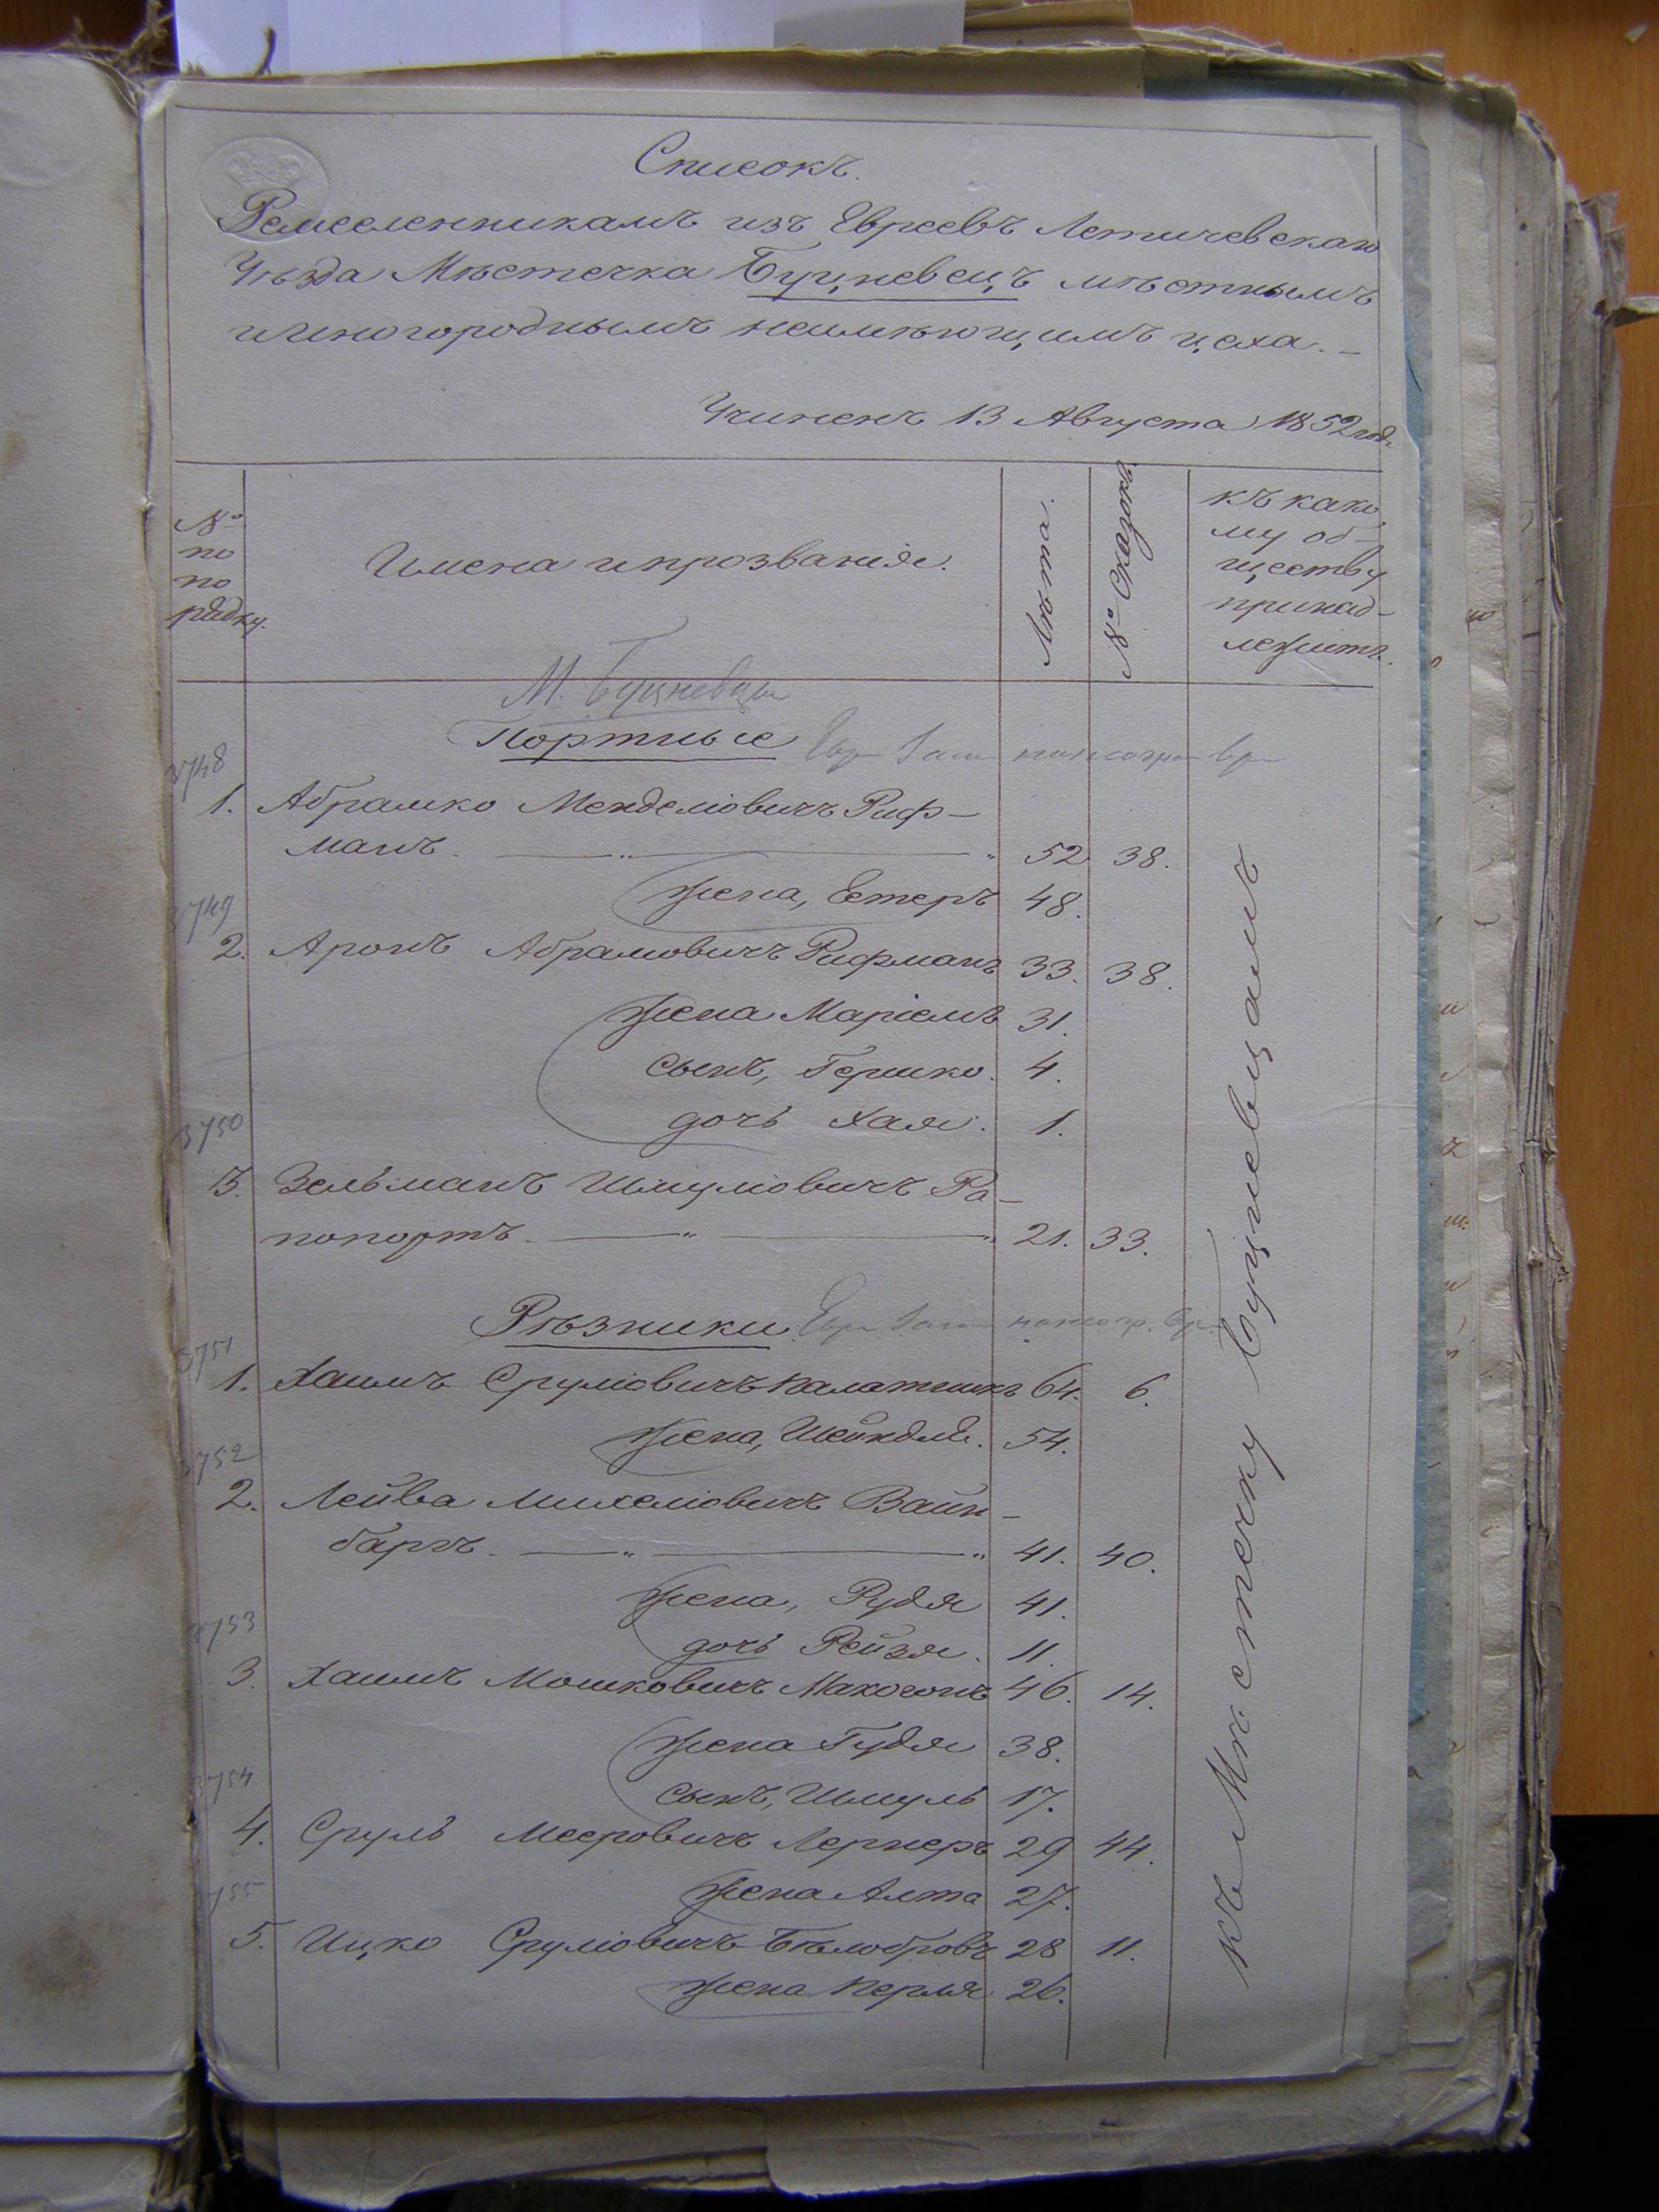 Списокъ.
Ремесленникамъ изъ Евреевъ Летичевскаго
Уѣзда Мѣстечка Буцневецъ мѣстнымъ
и иногороднымъ неимѣющимъ цеха. —
Учиненъ 13 Августа 1852 год.
№ по порядку.
Имена и прозванія.
Лѣта.
№ Сказокъ.
къ како
му об-
ществу
принад-
лежитъ.
М. Буцневцы
Портные
3748
1. Абрамко Менделіовичъ Риф-
манъ. — " — " 52 38.
жена, Естеръ 48.
3749
2. Аронъ Абрамовичъ Рифманъ 33. 38.
жена Маріемъ 31.
сынъ, Гершко. 4.
дочь Хая. 1.
3750
3. Зельманъ Шмуліовичъ Ра-
попортъ. — " — " 21. 33.
Рѣзники
3751
1. Хаимъ Сруліовичъ Палатникъ 64. 6.
жена, Шейндля. 54.
3752
2. Лейба Михеліовичъ Вайн-
баргъ. — " — " 41. 40.
жена, Рудя 41.
дочь Рейзя. 11.
3753
3. Хаимъ Мошковичъ Макогонъ 46. 14.
жена Гудя 38.
сынъ, Шмуль 17.
3754
4. Сруль Мееровичъ Лернеръ 29 44.
жена Алта 27.
3755
5. Ицко Сруліовичъ Бѣлобровъ 28 11.
жена Перля 26.
къ Мѣстечку Буцневцамъ